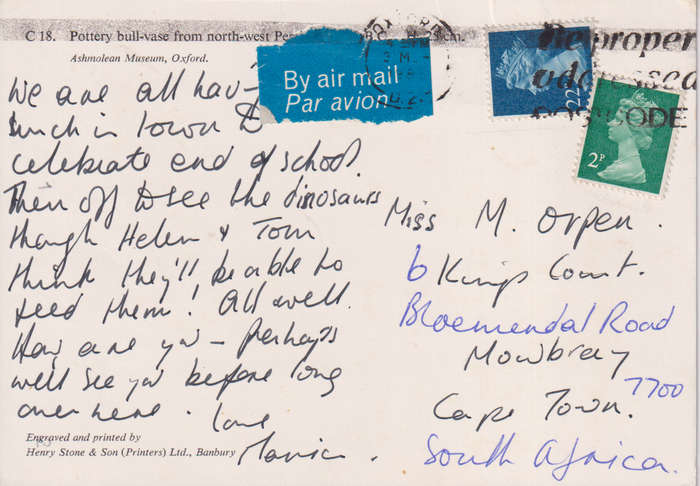 C 18. Pottery bull-vase from north-west Pe
Ashmolean Museum, Oxford.
By air mail
Par avion
22
2P
Be proper
addressed
POSTCODE
We are all hav-
lunch in town to
celebrate end of school.
Then off to see the dinosaurs
though Helen & Tom
think they'll be able to
feed them! All well.
How are you - perhaps
we'll see you before long
over here. love
Miss M. Orpen.
6 Kings Court.
Bloemendal Road
Mowbray
7700
Cape Town.
South Africa.
Engraved and printed by
Henry Stone & Son (Printers) Ltd., Banbury